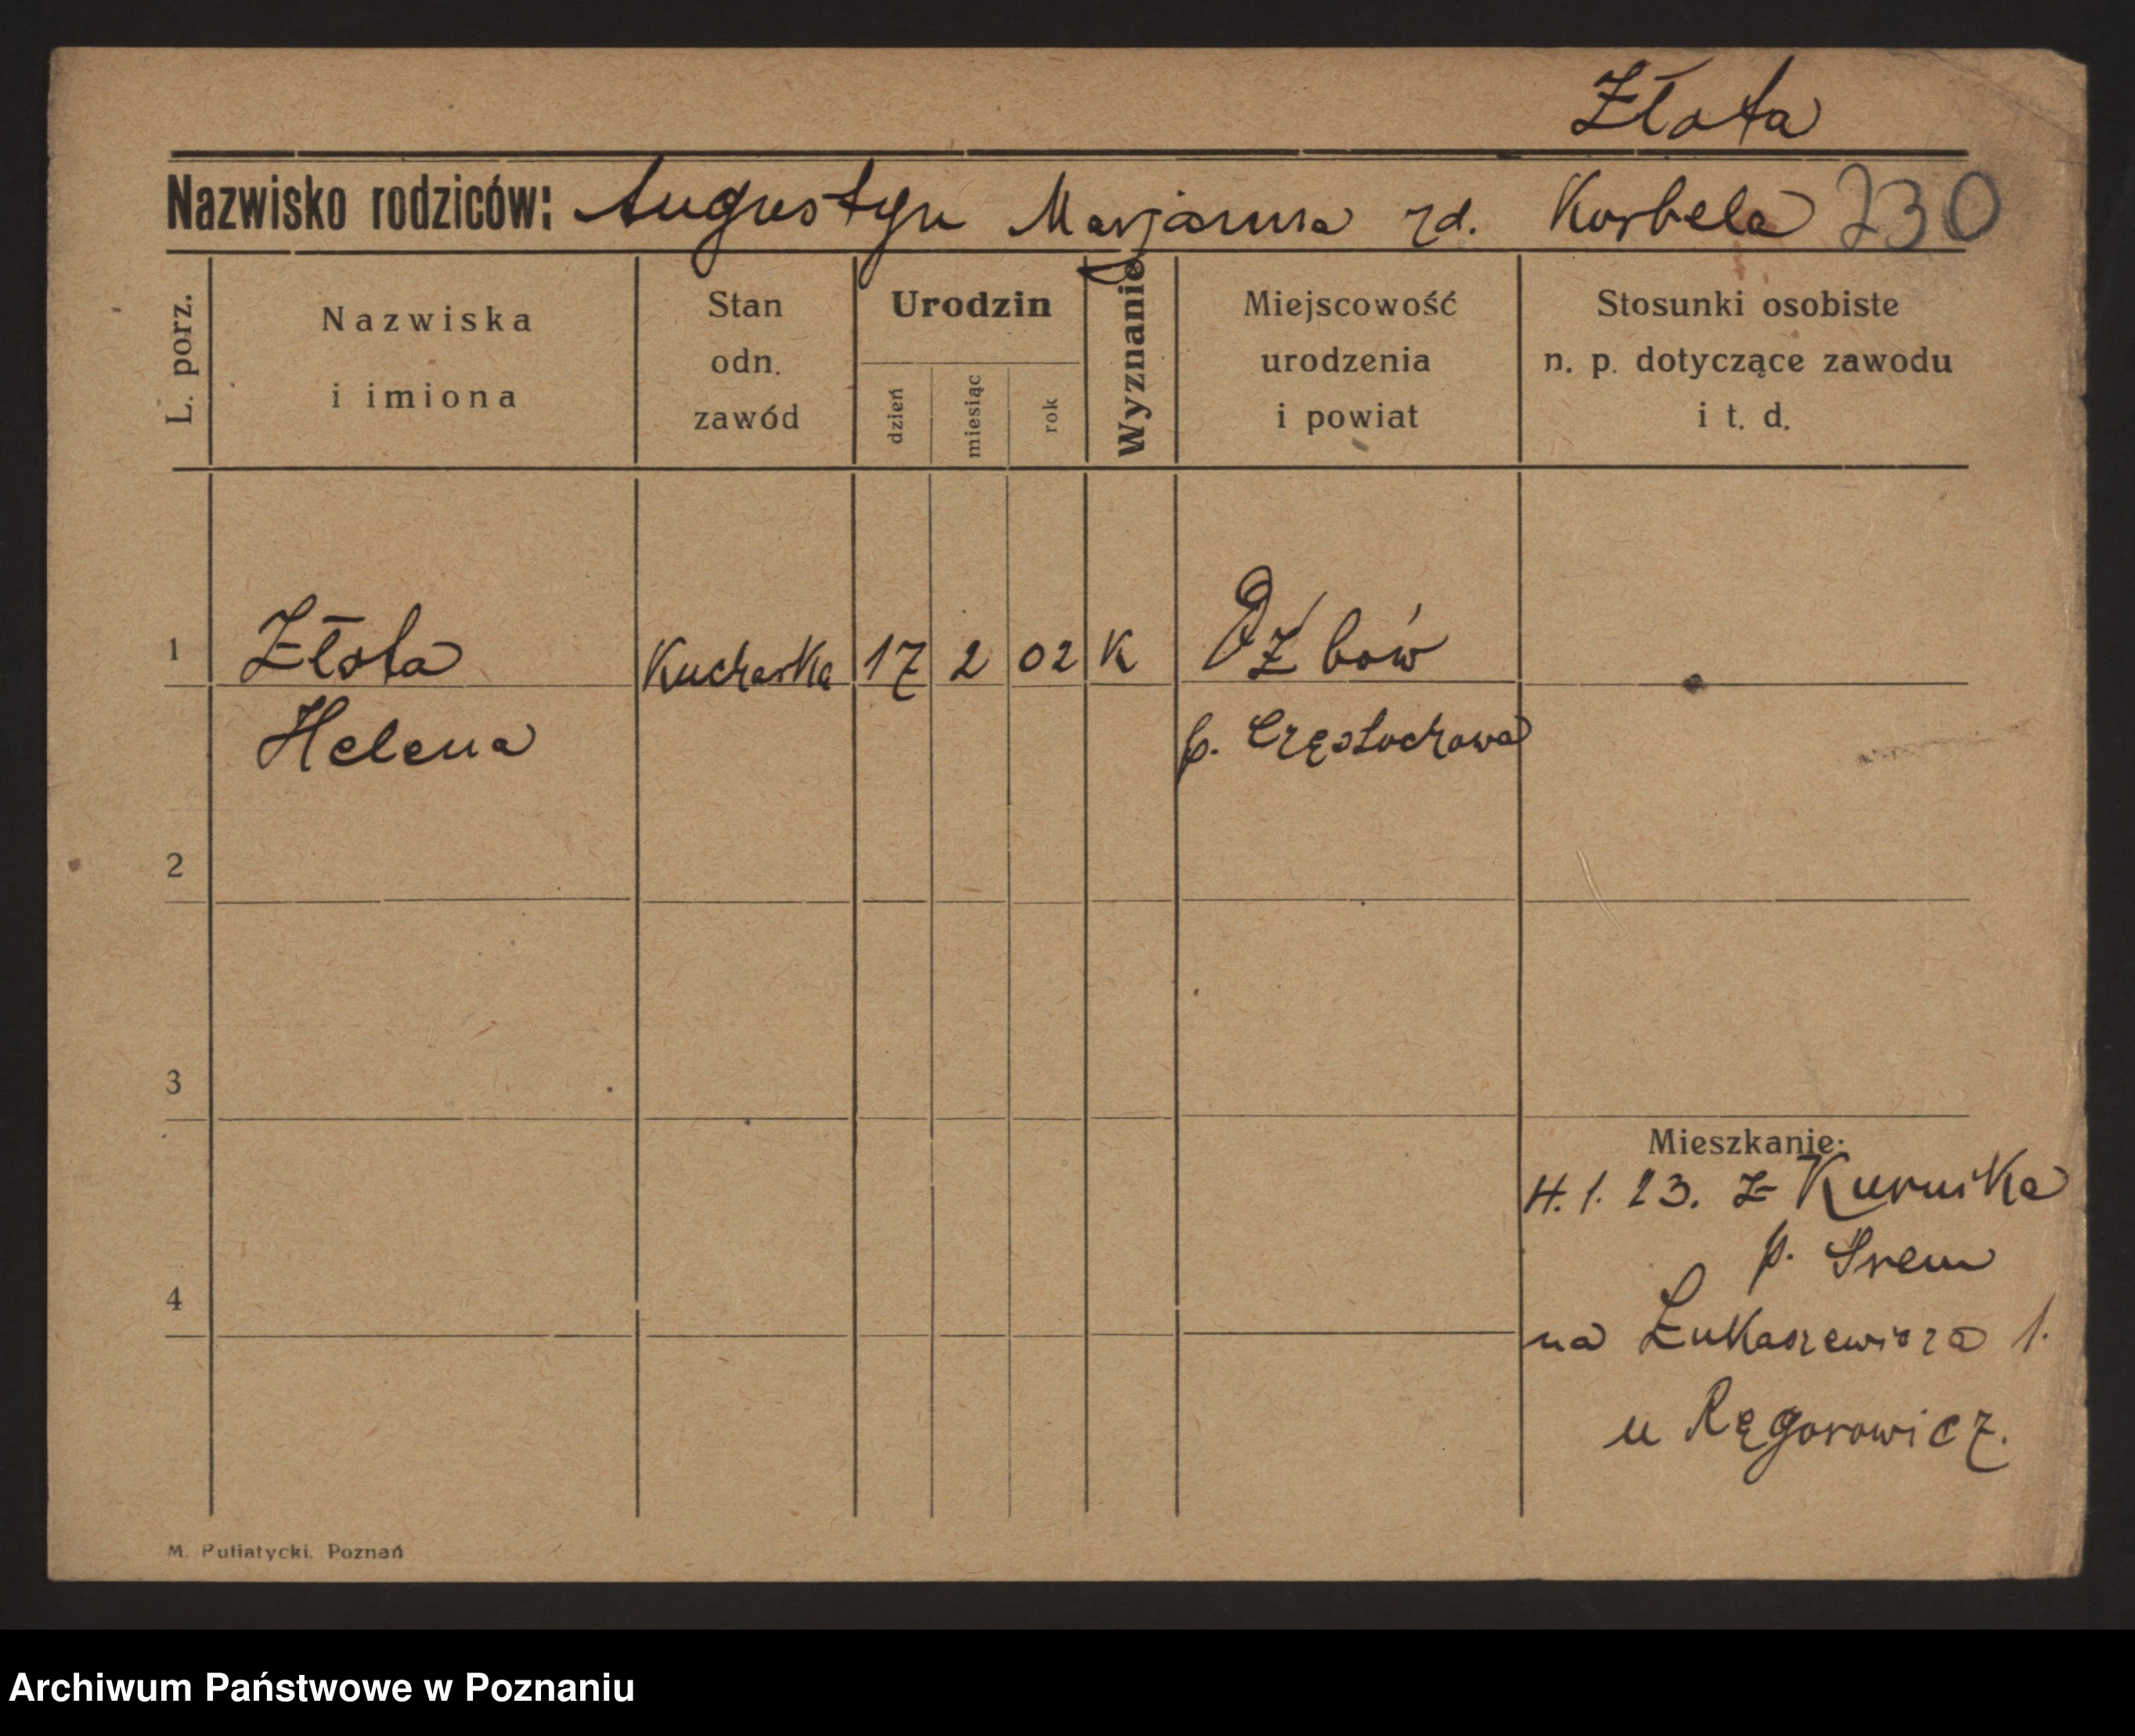 Złota
Nazwisko rodziców: Augustyn Marjanna rd. Korbela 230
L. porz.
Nazwiska
i imiona
Stan
odn.
zawód
Urodzin
dzień
miesiąc
rok
Wyznanie
Miejscowość
urodzenia
i powiat
Stosunki osobiste
n. p. dotyczące zawodu
i t. d.
1 Złota Kucharka 17 2 02 K bów
Helena p. Częstochowa
2
3
Mieszkanie:
4. 1. 23. z Kurnika
p. Srem
4
na Łukaszewicza 1.
u Ręgorowicz.
M. Putiatycki. Poznań
Archiwum Państwowe w Poznaniu